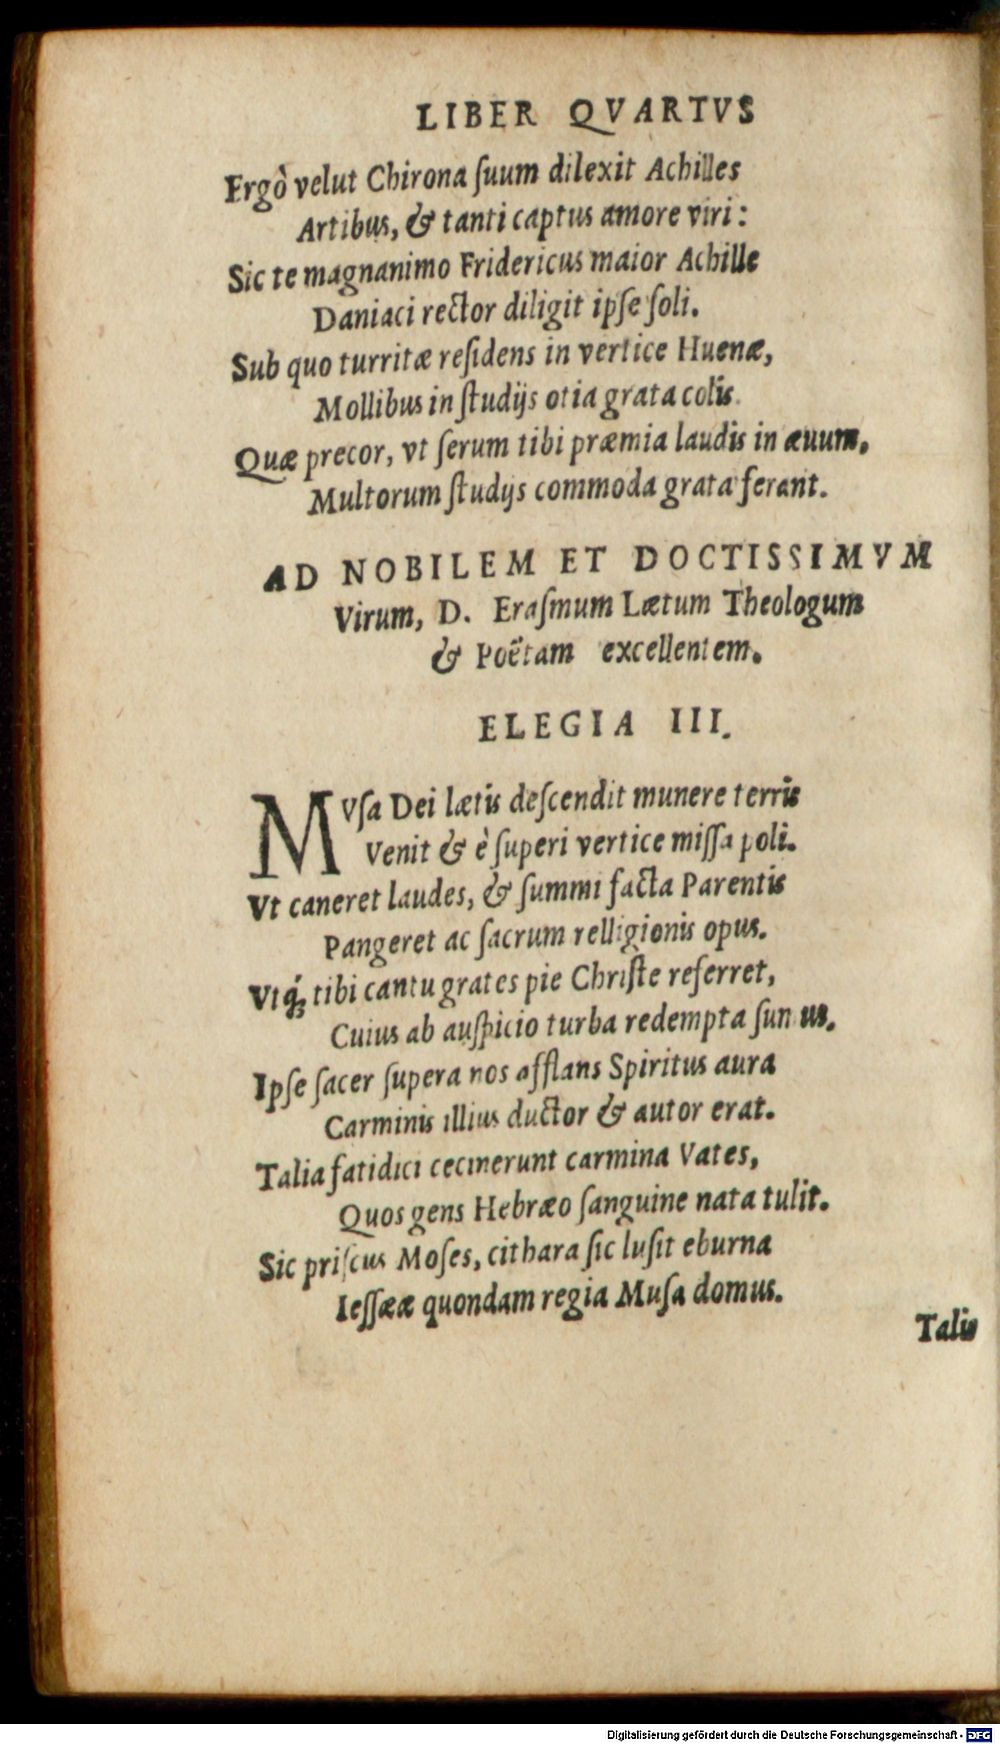 LIBER QVARTVS
Ergò velut Chirona ſuum dilexit Achilles
Artibus, & tanti captus amore viri:
Sic te magnanimo Fridericus maior Achille
Daniaci rector diligit ipſe ſoli.
Sub quo turritæ reſidens in vertice Huenæ,
Mollibus in ſtudijs otia grata colis.
Quæ precor, vt ſerum tibi præmia laudis in æuum,
Multorum ſtudijs commoda grata ferant.
AD NOBILEM ET DOCTISSIMVM
Virum, D. Eraſmum Lætum Theologum
& Poëtam excellentem.
ELEGIA III.
MVſa Dei lætis deſcendit munere terris
Venit & è ſuperi vertice miſſa poli.
Vt caneret laudes, & ſummi facta Parentis
Pangeret ac ſacrum relligionis opus.
Vtq́; tibi cantu grates pie Chriſte referret,
Cuius ab auſpicio turba redempta ſumus.
Ipſe ſacer ſupera nos afflans Spiritus aura
Carminis illius ductor & autor erat.
Talia fatidici cecinerunt carmina Vates,
Quos gens Hebræo ſanguine nata tulit.
Sic priſcus Moſes, cithara ſic luſit eburna
Ieſſææ quondam regia Muſa domus.
Talis
Digitalisierung gefördert durch die Deutsche Forschungsgemeinschaft - DFG